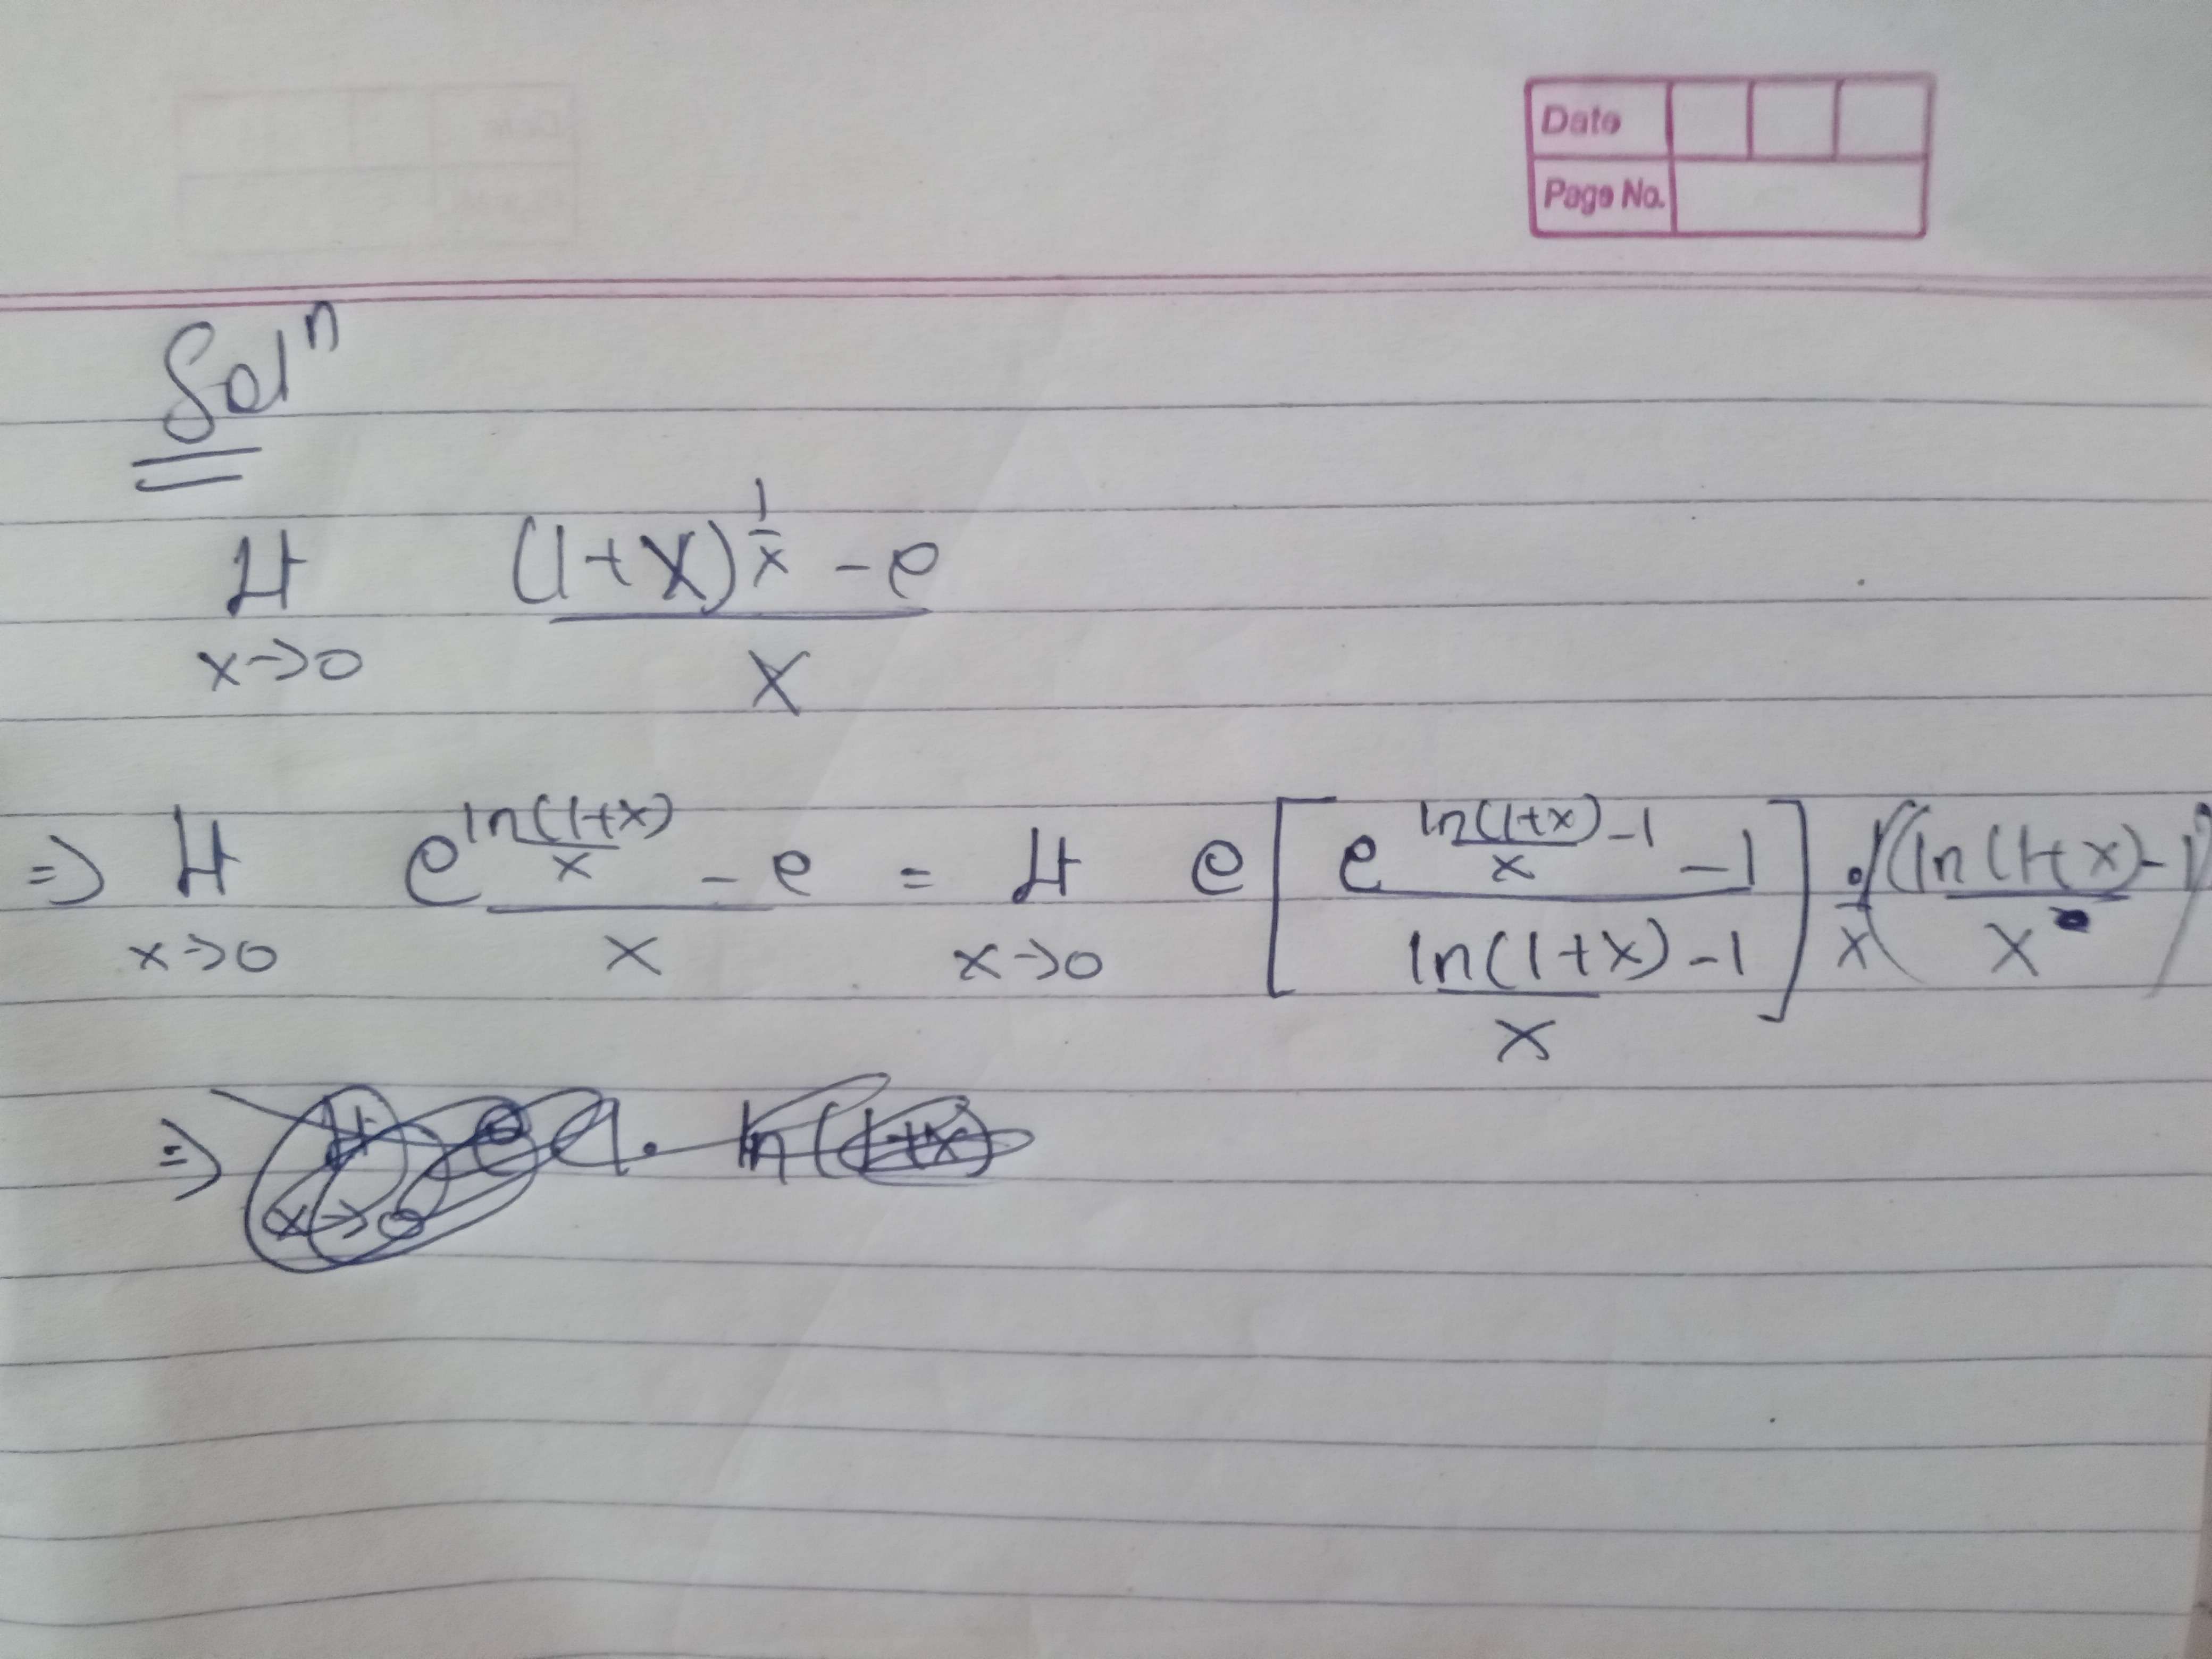 Date
Page No.
Solⁿ
Lt x→0 ((1+x)^(1/x) - e)/x
⇒ Lt x→0 (e^(ln(1+x)/x) - e)/x = Lt x→0 e[(e^(ln(1+x)/x - 1) - 1)/(ln(1+x)/x - 1)] · 1/x (ln(1+x)/x - 1)
⇒